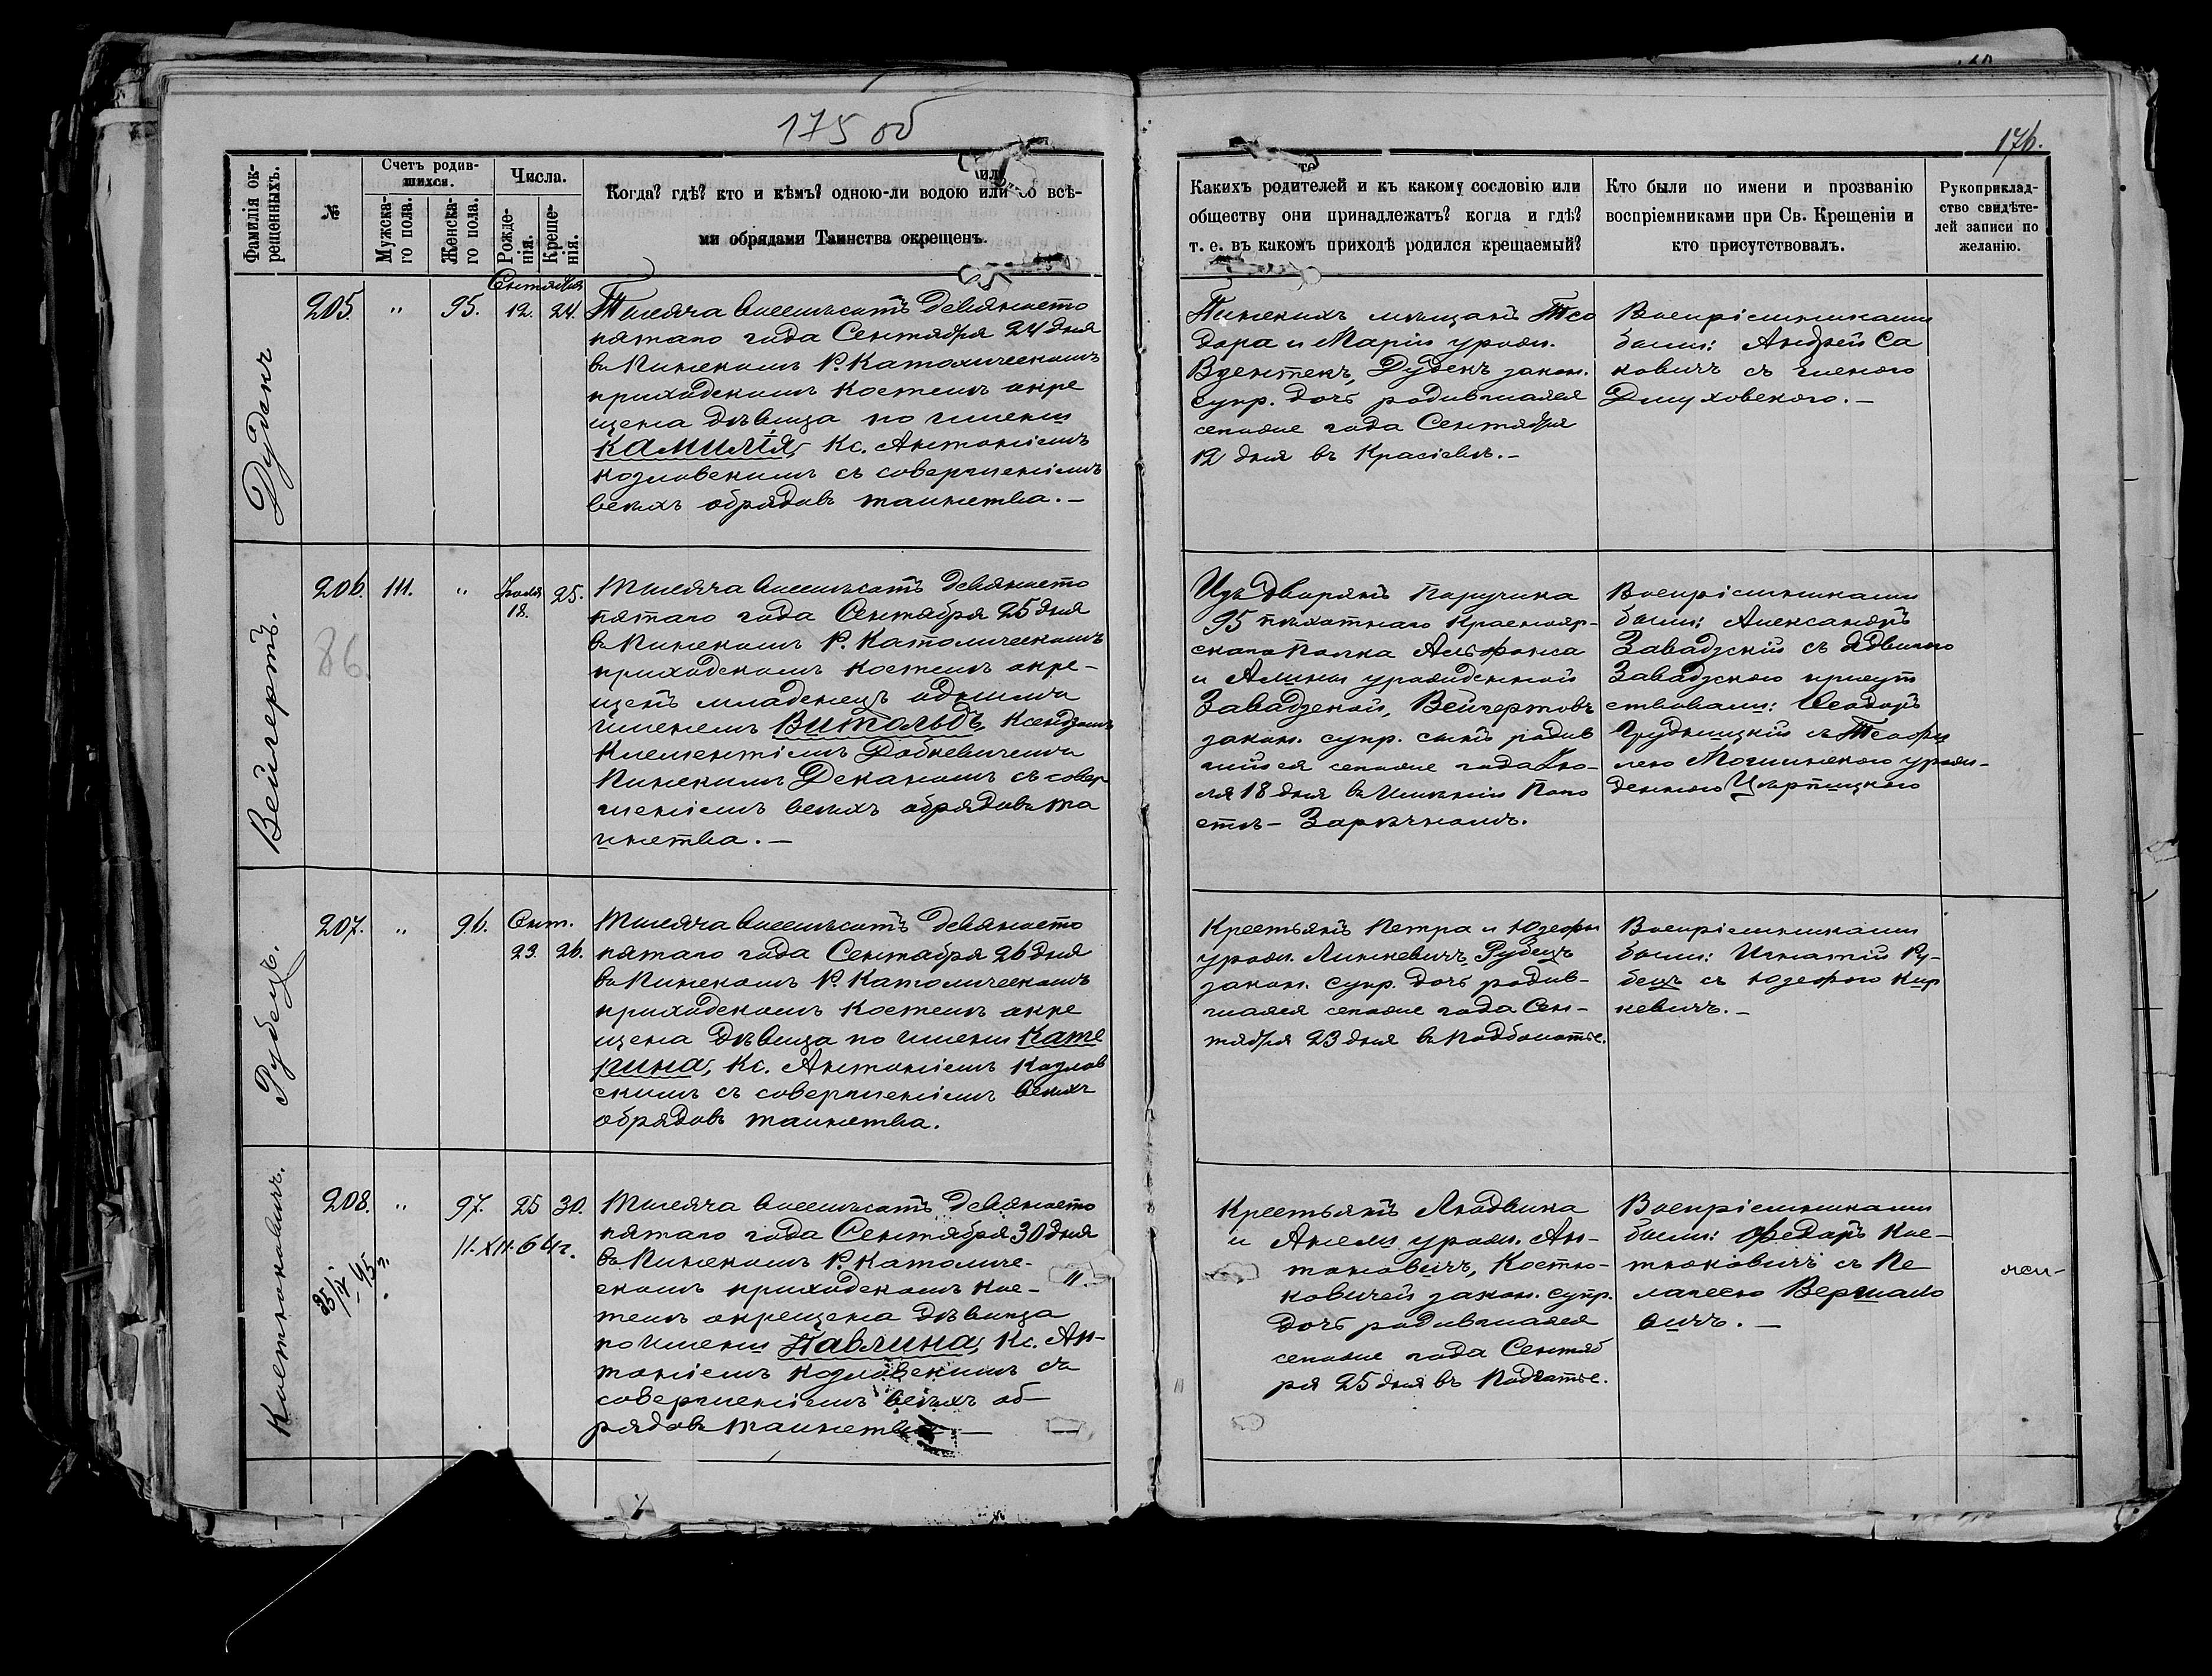 175 об
176.
Фамилія ок-
рещенныхъ.
№
Счетъ родив-
шихся.
Мужска-
го пола.
Женска-
го пола.
Числа.
Рожде-
нія.
Креще-
нія.
Когда? гдѣ? кто и кѣмъ? одною-ли водою или со всѣ-
ми обрядами Таинства окрещенъ.
Какихъ родителей и къ какому сословію или
обществу они принадлежатъ? когда и гдѣ?
т. е. въ какомъ приходѣ родился крещаемый?
Кто были по имени и прозванію
воспріемниками при Св. Крещеніи и
кто присутствовалъ.
Рукоприклад-
ство свидѣте-
лей записи по
желанію.
Дудакъ
205.
"
95.
Сентября
12. 24.
Тысяча восемьсотъ девяносто
пятаго года Сентября 24 дня
въ Пинскомъ Р. Католическомъ
приходскомъ костелѣ окре
щена дѣвица по имени
Камилія, Кс. Антоніемъ
Козловскимъ съ совершеніемъ
всѣхъ обрядовъ таинства. —
Пинскихъ мѣщанъ Тео
дора и Маріи урожд.
Вдентекъ, Дудекъ закон.
супр. дочь родившаяся
сегоже года Сентября
12 дня въ Красіевѣ. —
Воспріемниками
были: Андрей Са
ковичъ съ
Дмуховскою. —
Вейгертъ.
206.
111.
"
Іюля
18.
25.
86.
Тысяча восемьсотъ девяносто
пятаго года Сентября 25 дня
въ Пинскомъ Р. Католическомъ
приходскомъ костелѣ окре-
щенъ младенецъ однимъ
именемъ Витольдъ, Ксендзомъ
Клементіемъ Добкевичемъ
Пинскимъ Деканомъ съ совер
шеніемъ всѣхъ обрядовъ та
инства. —
Изъ дворянъ Поручика
95 пѣхотнаго Краснояр-
скаго Полка Альфонса
и Алины урожденной
Завадзской, Вейгертовъ
закон. супр. сынъ родив
шійся сегоже года Ію-
ля 18 дня въ Имѣніи Пого
стѣ-Зарѣчномъ.
Воспріемниками
были: Александръ
Завадзскій съ Ядвигою
Завадзскою присут
ствовали: Ѳеодоръ
Грудницкій съ Теофи
лею Могинскою урож-
денною
Рубецъ.
207.
"
96.
Сент.
23. 26.
Тысяча восемьсотъ девяносто
пятаго года Сентября 26 дня
въ Пинскомъ Р. Католическомъ
приходскомъ костелѣ окре
щена дѣвица по имени Кате
рина, Кс. Антоніемъ Козлов
скимъ съ совершеніемъ всѣхъ
обрядовъ таинства.
Крестьянъ Петра и Юзефы
урожд. Линкевичъ, Рубецъ
закон. супр. дочь родив-
шаяся сегоже года Сен-
тября 23 дня въ Подболотье.
Воспріемниками
были: Игнатій Ру-
бецъ съ Юзефою Кир
кевичъ. —
Костюковичъ.
208.
"
97.
25
30.
11.XII.64г.
Тысяча восемьсотъ девяносто
пятаго года Сентября 30 дня
въ Пинскомъ Р. Католиче-
скомъ приходскомъ кос-
телѣ окрещена дѣвица
по имени Павлина, Кс. Ан-
тоніемъ Козловскимъ съ
совершеніемъ всѣхъ об-
рядовъ таинства —
Крестьянъ Людвика
и Анели урожд. Ан-
тоновичъ, Костю-
ковичей закон. супр.
дочь родившаяся
сегоже года Сентяб
ря 25 дня въ Подгатье.
Воспріемниками
были: Федоръ Кос-
тюковичъ съ Пе
лагеею Вершало
вичъ. —